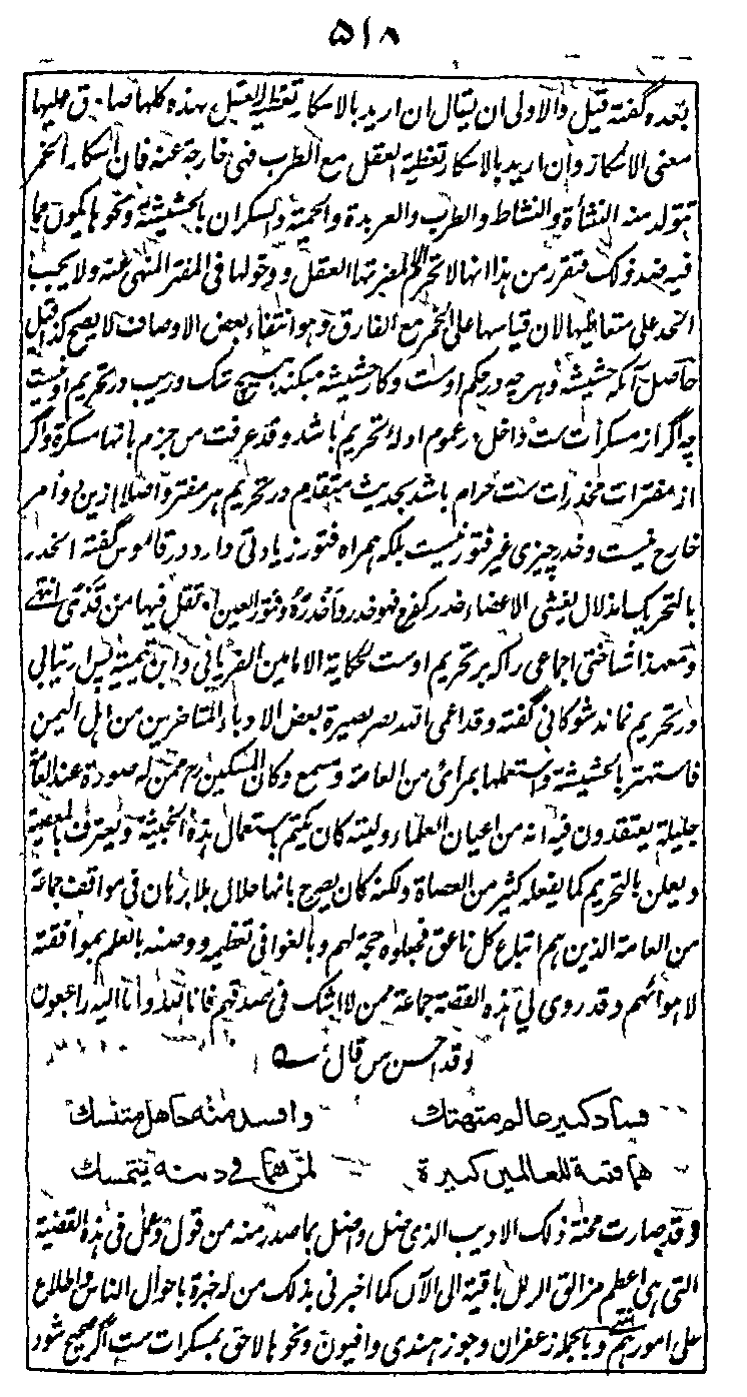 ۵۱۸
بعده گفته قیل والاولی ان یقال ان ارید بالاسکار تغطیة العقل بهذه کلها صادق علیها
معنی الاسکار وان ارید بالاسکار تغطیة العقل مع الطرب فهی خارجة عنه فان اسکار الخمر
تتولد منه النشأة والنشاط والطرب والعربدة والحمیة والسکران بالحشیشة ونحوها یکون مما
فیه ضد ذلک فتقرر من هذا انها لا تحرم الا لمضرتها العقل ودخولها فی المفتر المنهی عنه ولا یجب
الحد علی متعاطیها لان قیاسها علی الخمر مع الفارق وهو انتفاء بعض الاوصاف لا یصح کذا قیل
حاصل آنکه حشیشه وهر چه در حکم اوست وکار حشیشه میکند هیچ شک وریب در تحریم او نیست
چه اگر از مسکرات ست داخل در عموم ادلهٔ تحریم باشد وقد عرفت من جزم بانها مسکرة واگر
از مفترات ومخدرات ست حرام باشد بحدیث متقدم در تحریم هر مفتر واصلا ازین دو امر
خارج نیست وخدر چیزی غیر فتور نیست بلکه همراه فتور زیادتی دارد در قاموس گفته الخدر
بالتحریک امذلال یغشی الاعضاء خدر کفرح فهو خدر واخدره وفتور العین او ثقل فیها من قذی انتهی
ومعهذا شناختی اجماعی را که بر تحریم اوست لحکایة الامامین القرافی وابن تیمیة پس ارتیابی
در تحریم نماند شوکانی گفته وقد اعمی الله بصر بصیرة بعض الادباء المتاخرین من اهل الیمن
فاستهتر بالحشیشة واستعملها بمرأی من العامة ومسمع وکان المسکین رح ممن له صورة عند العامة
جلیلة یعتقدون فیه انه من اعیان العلماء ولیته کان یکتم باستعمال هذه الخبیثة ویعترف بالمعصیة
ویعلن بالتحریم کما یفعله کثیر من العصاة ولکنه کان یصرح بانها حلال بلا برهان فی مواقف جماعة
من العامة الذین هم اتباع کل ناعق فجعلوه حجة لهم وبالغوا فی تعظیمه ووصفه بالعلم بموافقته
لاهوائهم وقد روی لی هذه القصة جماعة ممن لا اشک فی صدقهم فانا لله وانا الیه راجعون
وقد احسن من قال
فساد کبیر عالم متهتک وافسد منه جاهل متنسک
هما فتنة للعالمین کبیرة لمن هما فی دینه یتمسک
وقد صارت محنة ذلک الادیب الذی ضل واضل بما صدر منه من قول وعمل فی هذه القضیة
التی هی اعظم مزالق الزلل باقیة الی الآن کما اخبرنی بذلک من له خبرة باحوال الناس واطلاع
علی امورهم انتهی وبالجمله زعفران وجوز هندی وافیون ونحوها لاحق بمسکرات ست اگر صحیح شود